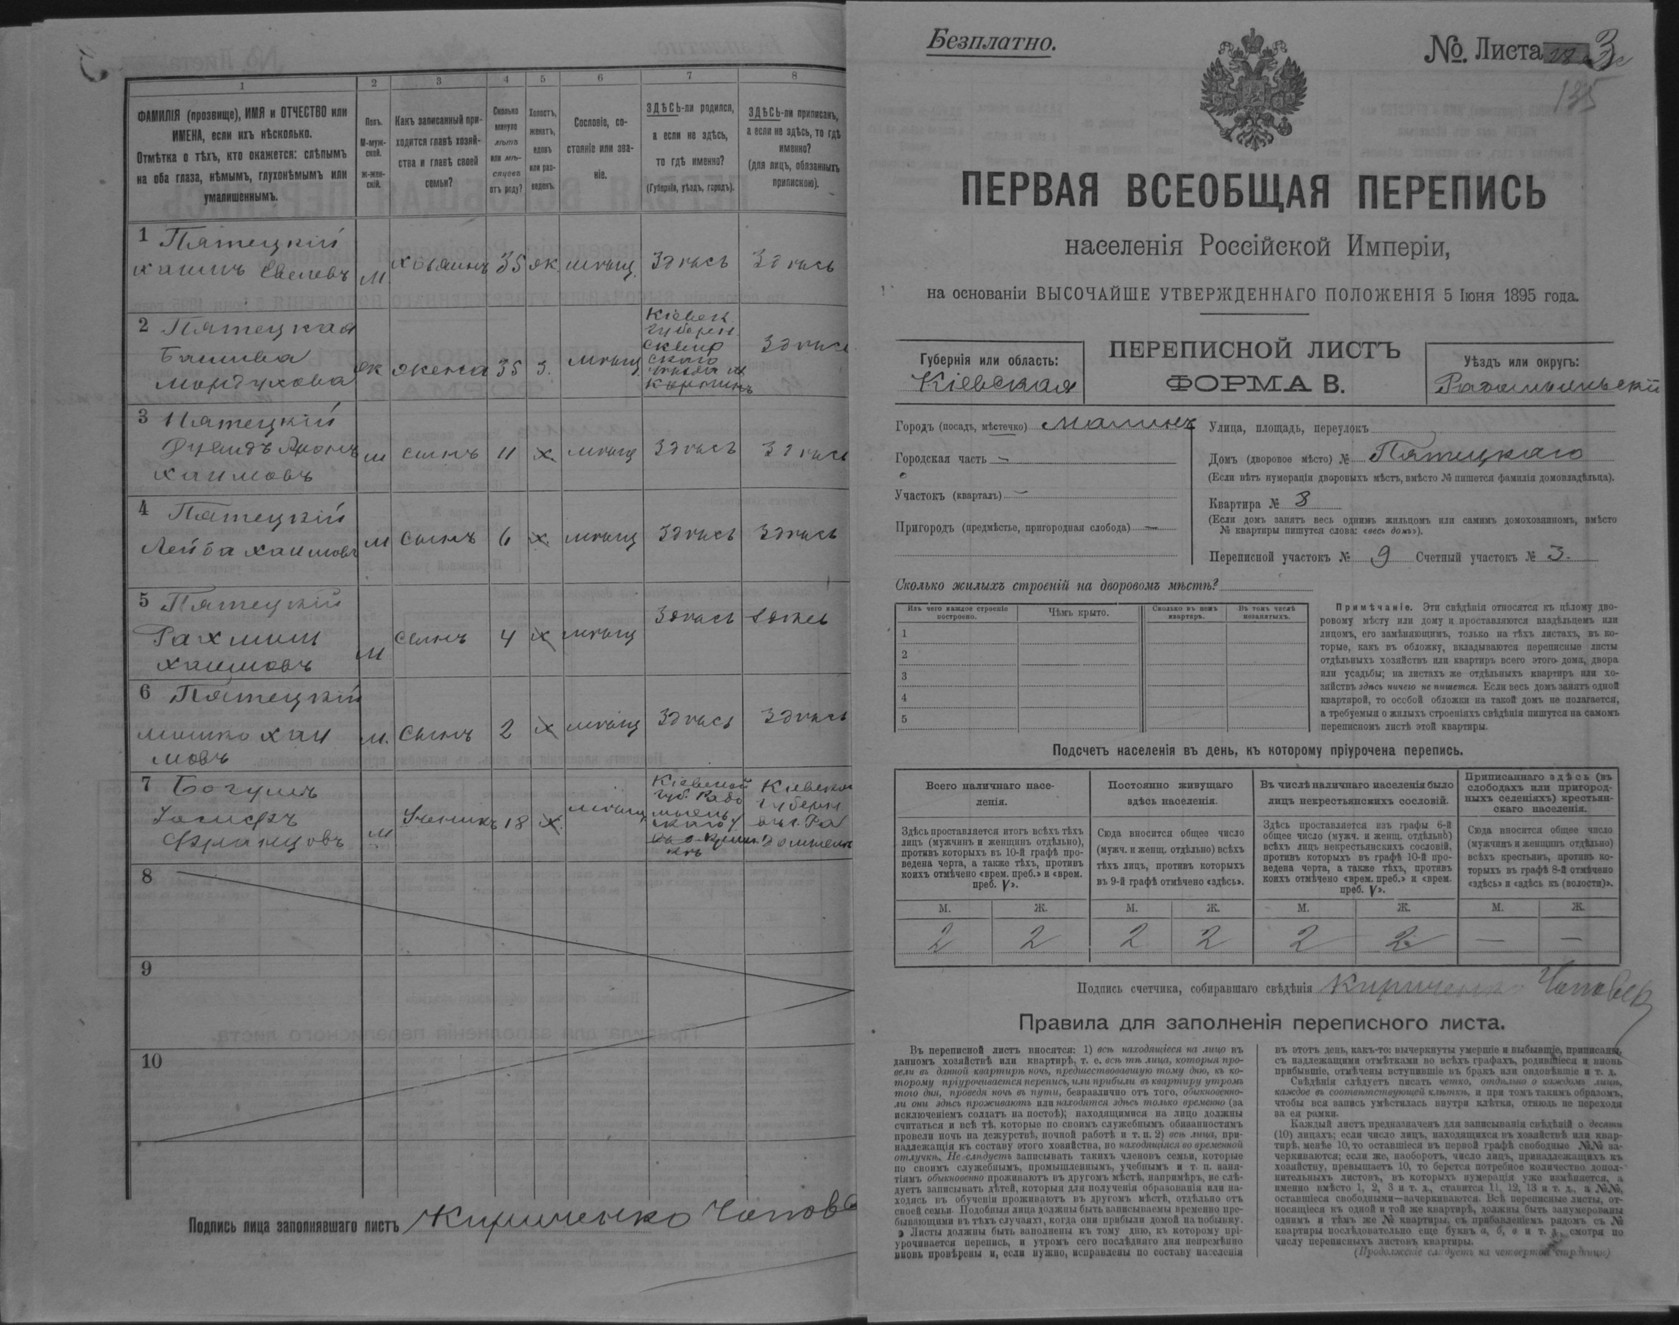 1 2 3 4 5 6 7 8
ФАМИЛІЯ (прозвище), ИМЯ и ОТЧЕСТВО или
ИМЕНА, если ихъ нѣсколько.
Отмѣтка о тѣхъ, кто окажется: слѣпымъ
на оба глаза, нѣмымъ, глухонѣмымъ или
умалишеннымъ.
Полъ.
М-муж-
ской.
Ж-жен-
скій.
Какъ записанный при-
ходится главѣ хозяй-
ства и главѣ своей
семьи?
Сколько
минуло
лѣтъ
или мѣ-
сяцевъ
отъ роду?
Холостъ,
женатъ,
вдовъ
или раз-
веденъ.
Сословіе, со-
стояніе или зва-
ніе.
ЗДѢСЬ-ли родился,
а если не здѣсь,
то гдѣ именно?
(Губернія, уѣздъ, городъ).
ЗДѢСЬ-ли приписанъ,
а если не здѣсь, то гдѣ
именно?
(для лицъ, обязанныхъ
припискою).
1 Пятецкій
Хаимъ
м хозяинъ 35 ж. мѣщ. Здѣсь Здѣсь
2 Пятецкая
Мордухова
ж жена 35 з. мѣщ
Кіевск
губерн
сквир
скаго
Здѣсь
3 Пятецкій
Хаимовъ
м сынъ 11 х. мѣщ Здѣсь Здѣсь
4 Пятецкій
Лейба Хаимовъ
м сынъ 6 х. мѣщ Здѣсь Здѣсь
5 Пятецкій
Рахмиил
Хаимовъ
м сынъ 4 х мѣщ Здѣсь Здѣсь
6 Пятецкій
Мошко Хаи
мовъ
м. сынъ 2 х мѣщ Здѣсь Здѣсь
7 Богушъ
Іосифъ
Францовъ
м Ученикъ 18 х. мѣщ
Кіевской
губ. Радо
мысль
скаго у
Кіевской
губерн
8
9
10
Подпись лица заполнявшаго листъ Кириченко
Безплатно.
№. Листа 3
135
ПЕРВАЯ ВСЕОБЩАЯ ПЕРЕПИСЬ
населенія Россійской Имперіи,
на основаніи ВЫСОЧАЙШЕ УТВЕРЖДЕННАГО ПОЛОЖЕНІЯ 5 Іюня 1895 года.
Губернія или область:
Кіевская
ПЕРЕПИСНОЙ ЛИСТЪ
ФОРМА В.
Уѣздъ или округъ:
Радомысльскій
Городъ (посадъ, мѣстечко) Малинъ
Городская часть —
Участокъ (кварталъ) —
Пригородъ (предмѣстье, пригородная слобода) —
Улица, площадь, переулокъ
Домъ (дворовое мѣсто) № Пятецкаго
(Если нѣтъ нумераціи дворовыхъ мѣстъ, вмѣсто № пишется фамилія домовладѣльца).
Квартира № 3
(Если домъ занятъ весь однимъ жильцомъ или самимъ домохозяиномъ, вмѣсто
№ квартиры пишутся слова: «весь домъ»).
Переписной участокъ № 9 Счетный участокъ № 3.
Сколько жилыхъ строеній на дворовомъ мѣстѣ?
Изъ чего каждое строеніе
построено.
Чѣмъ крыто.
Сколько въ немъ
квартиръ.
Въ томъ числѣ
незанятыхъ.
1
2
3
4
5
Примѣчаніе. Эти свѣдѣнія относятся къ цѣлому дво-
ровому мѣсту или дому и проставляются владѣльцемъ или
лицомъ, его замѣняющимъ, только на тѣхъ листахъ, въ ко-
торые, какъ въ обложку, вкладываются переписные листы
отдѣльныхъ хозяйствъ или квартиръ всего этого дома, двора
или усадьбы; на листахъ же отдѣльныхъ квартиръ или хо-
зяйствъ здѣсь ничего не пишется. Если весь домъ занятъ одной
квартирой, то особой обложки на такой домъ не полагается,
а требуемыя о жилыхъ строеніяхъ свѣдѣнія пишутся на самомъ
переписномъ листѣ этой квартиры.
Подсчетъ населенія въ день, къ которому пріурочена перепись.
Всего наличнаго насе-
ленія.
Здѣсь проставляется итогъ всѣхъ тѣхъ
лицъ (мужчинъ и женщинъ отдѣльно),
противъ которыхъ въ 10-й графѣ про-
ведена черта, а также тѣхъ, противъ
коихъ отмѣчено «врем. преб.» и «врем.
преб. V».
Постоянно живущаго
здѣсь населенія.
Сюда вносится общее число
(мужч. и женщ. отдѣльно) всѣхъ
тѣхъ лицъ, противъ которыхъ
въ 9-й графѣ отмѣчено «здѣсь».
Въ числѣ наличнаго населенія было
лицъ некрестьянскихъ сословій.
Здѣсь проставляется изъ графы 6-й
общее число (мужч. и женщ. отдѣльно)
всѣхъ лицъ некрестьянскихъ сословій,
противъ которыхъ въ графѣ 10-й про-
ведена черта, а также тѣхъ, противъ
коихъ отмѣчено «врем. преб.» и «врем.
преб. V».
Приписаннаго здѣсь (въ
слободахъ или пригород-
ныхъ селеніяхъ) крестьян-
скаго населенія.
Сюда вносится общее число
(мужчинъ и женщинъ отдѣльно)
всѣхъ крестьянъ, противъ ко-
торыхъ въ графѣ 8-й отмѣчено
«здѣсь» и «здѣсь къ (волости)».
М. Ж. М. Ж. М. Ж. М. Ж.
2 2 2 2 2 2 — —
Подпись счетчика, собиравшаго свѣдѣнія Кириченко
Правила для заполненія переписного листа.
Въ переписной листъ вносятся: 1) всѣ находящіеся на лицо въ
данномъ хозяйствѣ или квартирѣ, т. е. всѣ тѣ лица, которыя про-
вели въ данной квартирѣ ночь, предшествовавшую тому дню, къ ко-
торому пріурочивается перепись, или прибыли въ квартиру утромъ
того дня, проведя ночь въ пути, безразлично отъ того, обыкновенно-
ли они здѣсь проживаютъ или находятся здѣсь только временно (за
исключеніемъ солдатъ на постоѣ); находящимися на лицо должны
считаться и всѣ тѣ, которые по своимъ служебнымъ обязанностямъ
провели ночь на дежурствѣ, ночной работѣ и т. п. 2) всѣ лица, при-
надлежащія къ составу этого хозяйства, но находящіяся во временной
отлучкѣ. Не слѣдуетъ записывать такихъ членовъ семьи, которые
по своимъ служебнымъ, промышленнымъ, учебнымъ и т. п. заня-
тіямъ обыкновенно проживаютъ въ другомъ мѣстѣ, напримѣръ, не слѣ-
дуетъ записывать дѣтей, которыя для полученія образованія или на-
ходясь въ обученіи проживаютъ въ другомъ мѣстѣ, отдѣльно отъ
своей семьи. Подобныя лица должны быть записываемы временно пре-
бывающими въ тѣхъ случаяхъ, когда они прибыли домой на побывку.
Листы должны быть заполнены къ тому дню, къ которому прі-
урочивается перепись, и утромъ сего послѣдняго дня непремѣнно
вновь провѣрены и, если нужно, исправлены по составу населенія
въ этотъ день, какъ-то: вычеркнуты умершіе и выбывшіе, приписаны,
съ надлежащими отмѣтками во всѣхъ графахъ, родившіеся и вновь
прибывшіе, отмѣчены вступившіе въ бракъ или овдовѣвшіе и т. д.
Свѣдѣнія слѣдуетъ писать четко, отдѣльно о каждомъ лицѣ,
каждое въ соотвѣтствующей клѣткѣ, и при томъ такимъ образомъ,
чтобы вся запись умѣстилась внутри клѣтки, отнюдь не переходя
за ея рамки.
Каждый листъ предназначенъ для записыванія свѣдѣній о десяти
(10) лицахъ; если число лицъ, находящихся въ хозяйствѣ или квар-
тирѣ, менѣе 10, то оставшіеся въ первой графѣ свободные №№ за-
черкиваются; если же, наоборотъ, число лицъ, принадлежащихъ къ
хозяйству, превышаетъ 10, то берется потребное количество допол-
нительныхъ листовъ, въ которыхъ нумерація уже измѣняется, а
именно вмѣсто 1, 2, 3 и т. д., ставится 11, 12, 13 и т. д., а №№,
оставшіеся свободными—зачеркиваются. Всѣ переписные листы, от-
носящіеся къ одной и той же квартирѣ, должны быть занумерованы
однимъ и тѣмъ же № квартиры, съ прибавленіемъ рядомъ съ №
квартиры послѣдовательно еще буквъ а, б, в и т. д., смотря по
числу переписныхъ листовъ квартиры.
(Продолженіе слѣдуетъ на четвертой страницѣ)